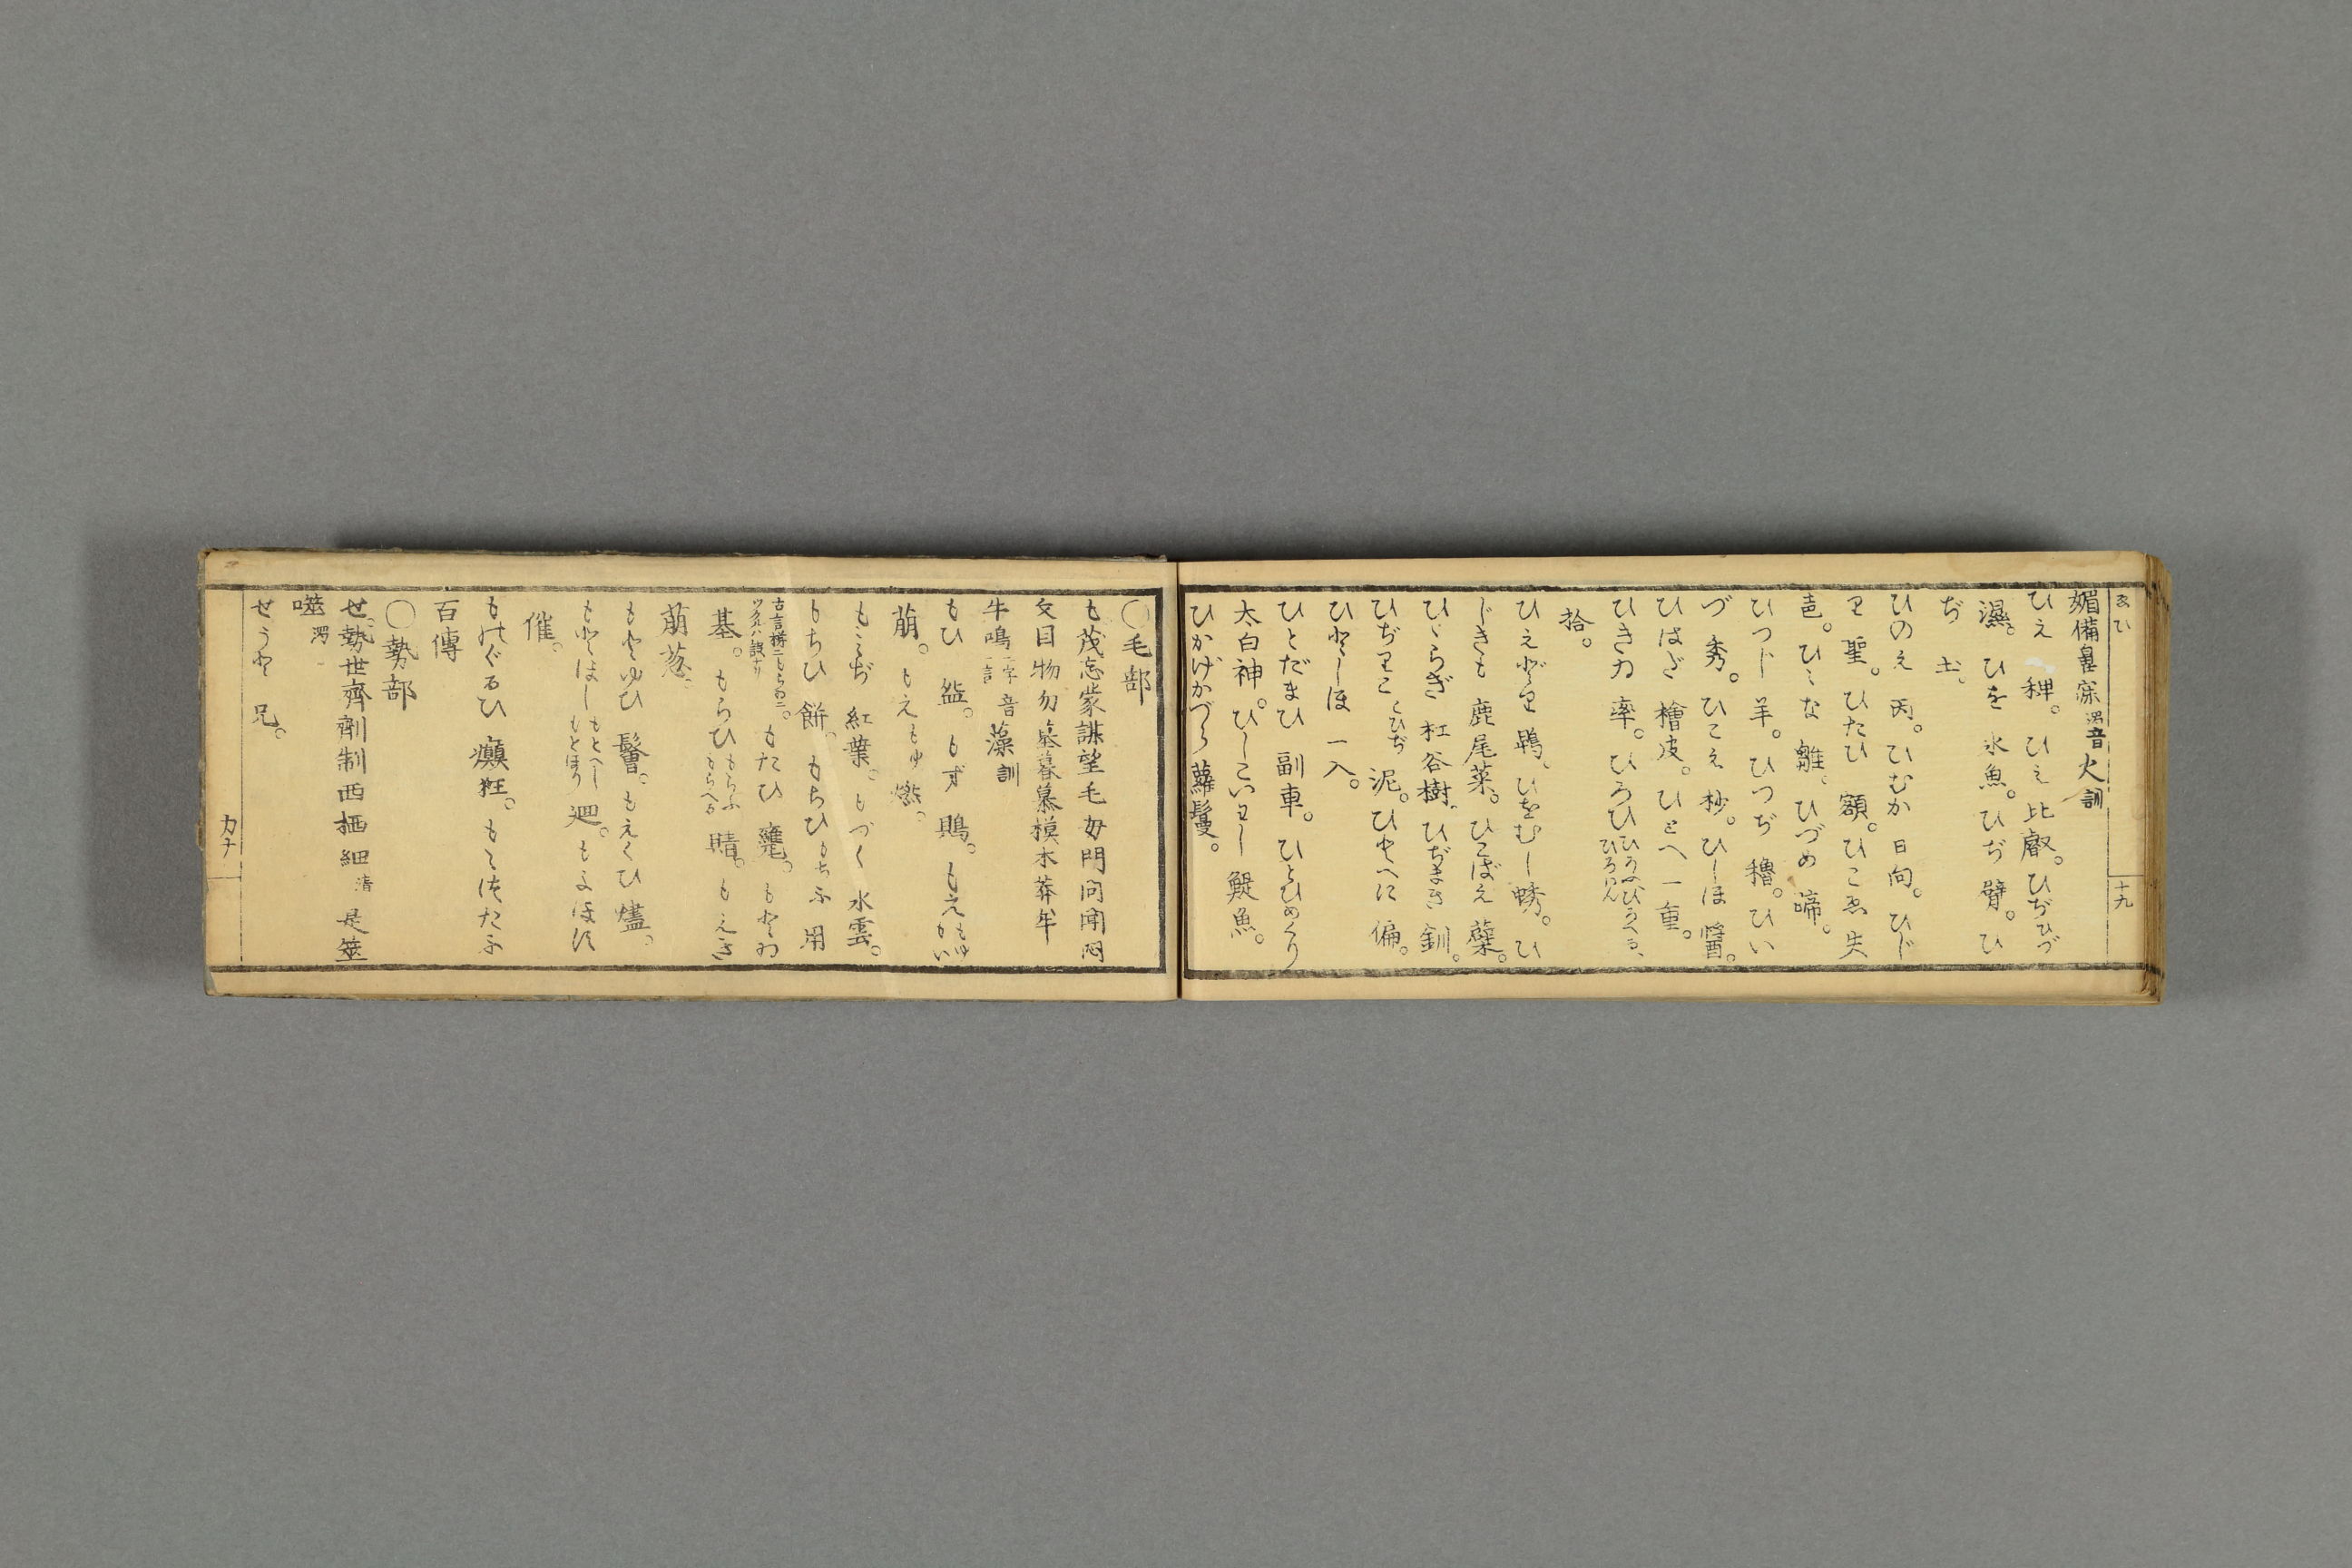 ゑひ
十九
媚備鼻寐濁音火訓
ひえ 稗。ひえ 比叡。ひぢひづ
濕。ひを 氷魚。ひぢ 臂。ひ
ぢ 土。
ひのえ 丙。ひむか 日向。ひじ
り 聖。ひたひ 額。ひこゑ 失
邑。ひゝな 雛。ひづめ 啼。
ひつじ 羊。ひつぢ 穭。ひい
づ 秀。ひこえ 杪。ひしほ 醬。
ひはだ 檜皮。ひとへ 一重。
ひきゐ 率。ひろひ ひろふひろへる、ひろはん
拾。
ひえどり 鵯。ひをむし 蜏。ひ
じきも 鹿尾菜。ひこばえ 蘖。
ひゝらぎ 杠谷樹。ひぢまき 釧。
ひぢりこ こひぢ 泥。ひとへに 偏。
ひとしほ 一入。
ひとだまひ 副車。ひとひめぐり
太白神。ひしこいわし 鯷魚。
ひかげかづら 蘿鬘。
〇毛部
も 茂忘蒙謀望毛母門問聞悶
文目物勿墓暮慕模木莽牟
牛鳴二字一言音藻訓
もひ 盌。もず 鵙。もえもゆ
萠。もえもゆ 燃。
もみぢ 紅葉。もづく 水雲。
もちひ 餅。もちひ もちふ 用
もたひ 甕。もとゐ
基。もらひ もらふもらへる 晴。もえぎ
萠葱。
もとゆひ 鬠。もえくひ 燼。
もとほし もとへしもとほり 廻。もよほす
催。
ものぐるひ 癲狂。もゝつたふ
百傳
〇勢部
せ 勢世齊劑制西栖細清 是筮
噬濁
せうと 兄。
カナ